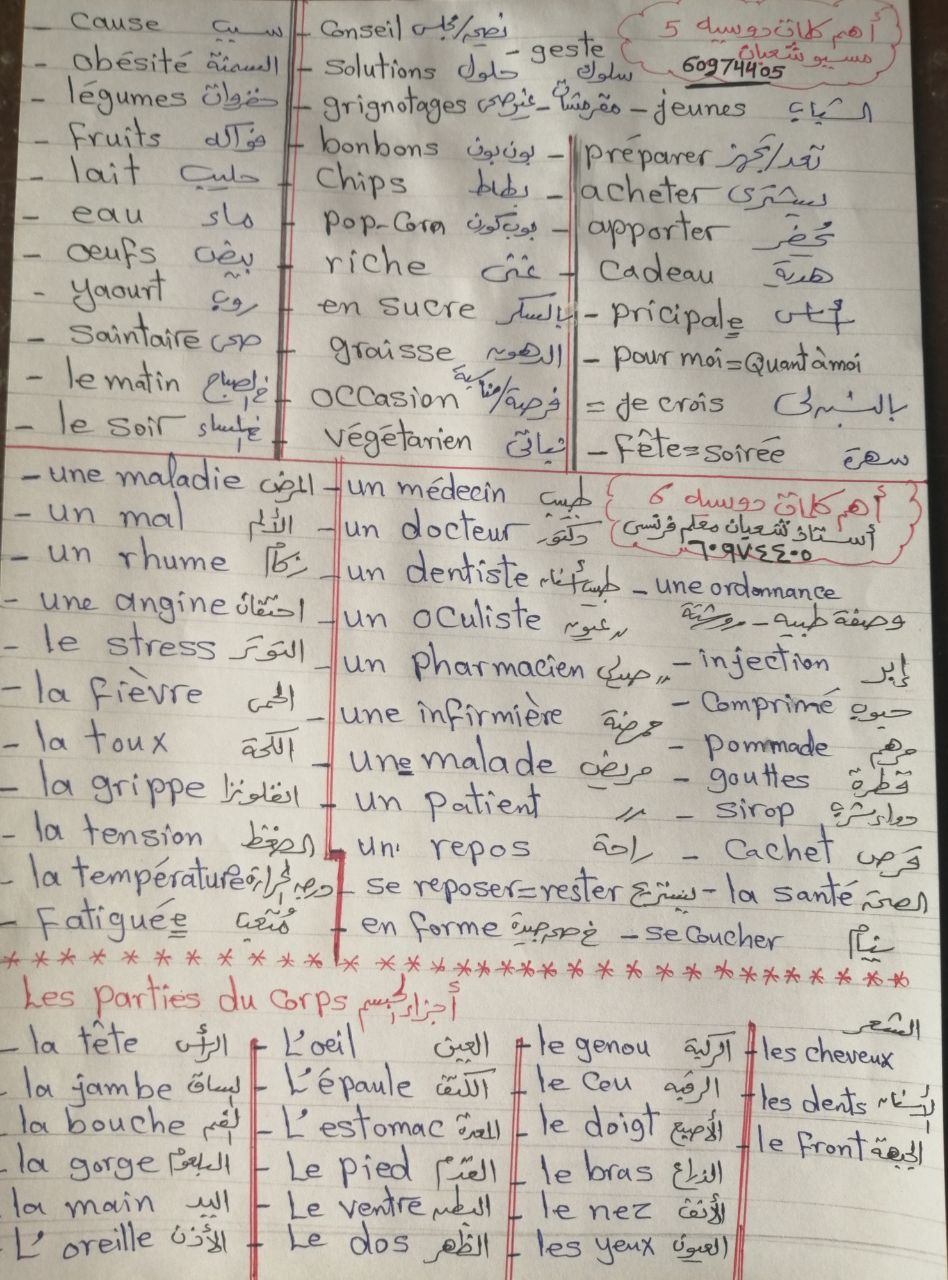 أهم كلمات دوسيه 5
مسيو شعبان
60974405
- cause سبب
- obésité السمنة
- légumes خضروات
- fruits فواكه
- lait حليب
- eau ماء
- oeufs بيض
- yaourt روب
- saintaire صحى
- le matin فى الصباح
- le soir فى المساء
- Conseil نصيحة/مجلس
- geste سلوك
- solutions حلول
- grignotages مقرمشات - غير صحى
- bonbons بون بون
- chips بطاط
- pop-Corn بوب كورن
- riche غنى
en sucre بالسكر
graisse الدهون
occasion فرصة/مناسبة
végétarien نباتى
- jeunes الشباب
- préparer تعد/تجهز
- acheter يشترى
- apporter تحضر
- cadeau هدية
- pricipale أساسى
- pour moi = Quant à moi
= je crois بالنسبة لى
- fête = soirée سهرة
- une maladie المرض
- un mal الألم
- un rhume زكام
- une angine احتقان
- le stress التوتر
- la fièvre الحمى
- la toux الكحة
- la grippe انفلونزا
- la tension الضغط
- la température درجه الحرارة
- Fatiguée مُتعب
- un médecin طبيب
- un docteur دكتور
- un dentiste طبيب أسنان
- un oculiste " عيون
- un pharmacien صيدلى
- une infirmière ممرضة
- une malade مريض
- un patient "
- un repos راحة
- se reposer = rester يستريح
- en forme فى صحى جيدة
أهم كلمات دوسيه 6
أستاذ شعبان معلم فرنسى
٦٠٩٧٤٤٠٥
- une ordonnance
وصفة طبيه - روشتة
- injection إبر
- Comprimé حبوب
- pommade مرهم
- gouttes قطرة
- sirop دواء شرب
- cachet قرص
- la santé الصحة
- se coucher ينام
Les parties du Corps أجزاء الجسم
- la tête الرأس
- la jambe الساق
- la bouche الفم
- la gorge البلعوم
- la main اليد
- L'oreille الأذن
- L'oeil العين
- L'épaule الكتف
- L'estomac المعدة
- Le pied القدم
- Le ventre البطن
- Le dos الظهر
- le genou الركبة
- le cou الرقبه
- le doigt الأصبع
- le bras الذراع
- le nez الأنف
- les yeux العيون
الشعر
- les cheveux
- les dents الأسنان
- le front الجبهة